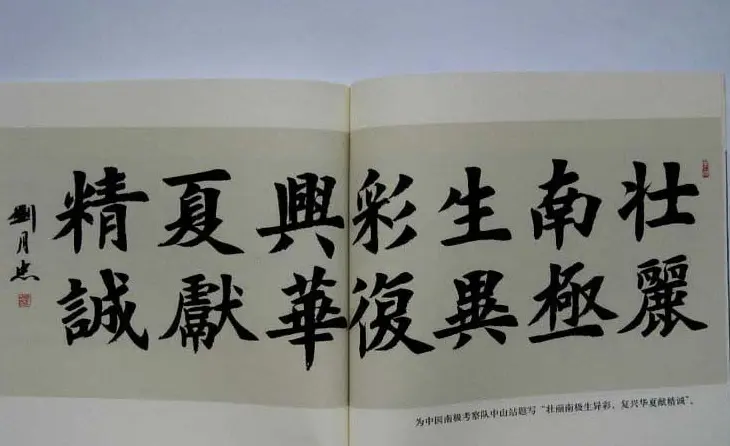 壮麗
南極
生異
彩復
興華
夏獻
精誠
劉月
为中国南极考察队中山站题写“壮丽南极生异彩、复兴华夏献精诚”。